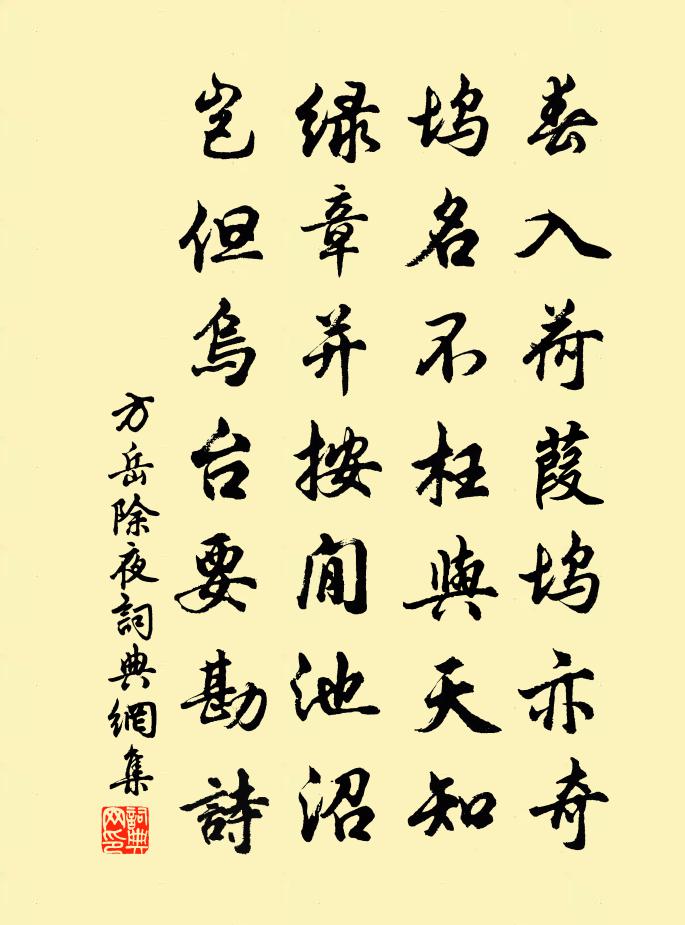 春入荷葭坞亦奇
坞名不枉與天知
绿章并按閒池沼
岂但烏台要勘詩
方岳除夜詞典網集
詞典网印